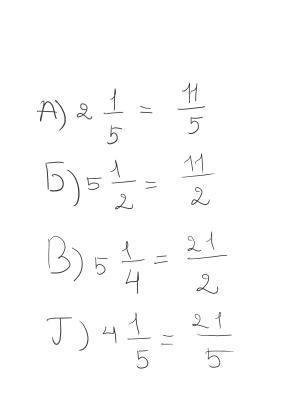 А) 2 1/5 = 11/5
Б) 5 1/2 = 11/2
В) 5 1/4 = 21/2
Г) 4 1/5 = 21/5